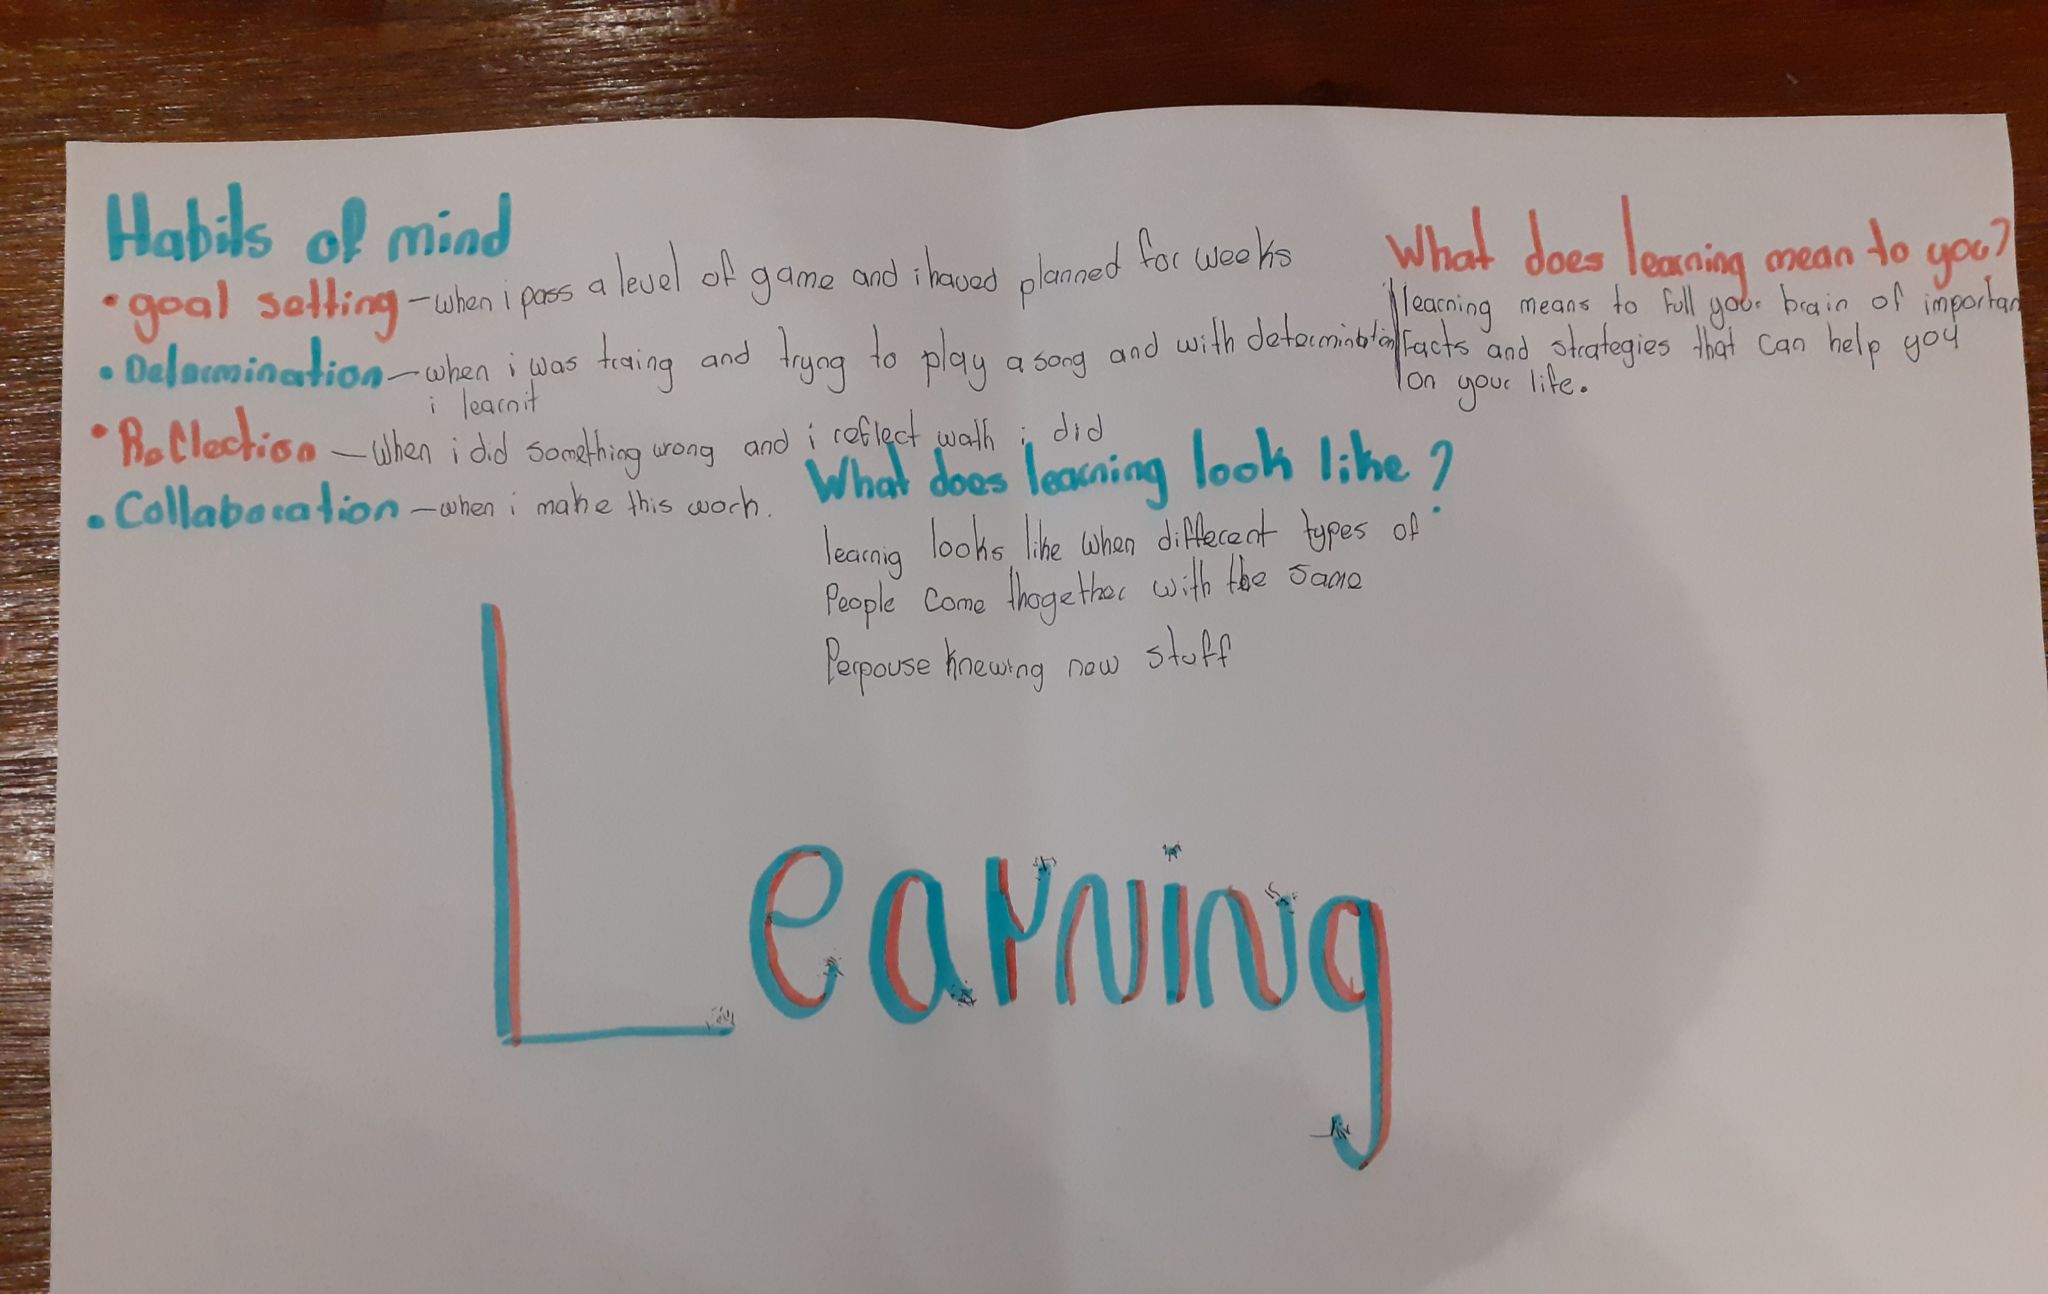 Habits of mind
• goal setting – when i pass a level of game and i haved planned for weeks
• Determination – when i was traing and tryng to play a song and with determination
i learnit
• Reflection – when i did something wrong and i reflect wath i did
• Collaboration – when i make this work.
What does learning mean to you?
learning means to full your brain of importan
facts and strategies that can help you
on your life.
What does learning look like?
learnig looks like when different types of
People come thogether with the same
Perpouse knewing new stuff
Learning